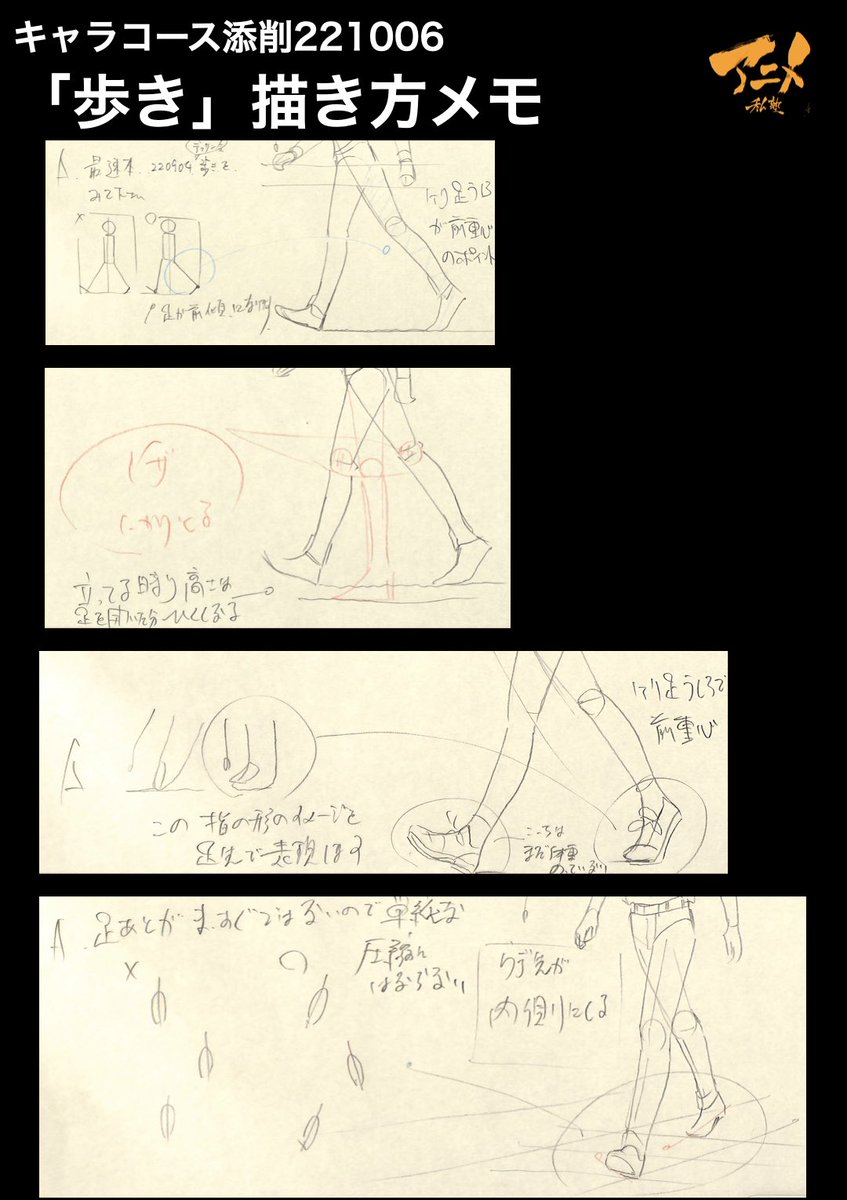 キャラコース添削221006
「歩き」描き方メモ
アニメ
私塾
A. 最速本. 220904 歩きを
みて下さい
ケリ足うしろ
が前重心
のポイント
足が前傾になり
ヒザ
にかりとる
立ってる時の高さは
足を開いた分ひくくなる
A
ケリ足うしろで
前重心
この指の形のイメージを
足先で表現します
こっちは
まだ体重
のっていない
A. 足あとがまっすぐではないので単純な
圧縮に
はならない
ウデ先が
内側にくる